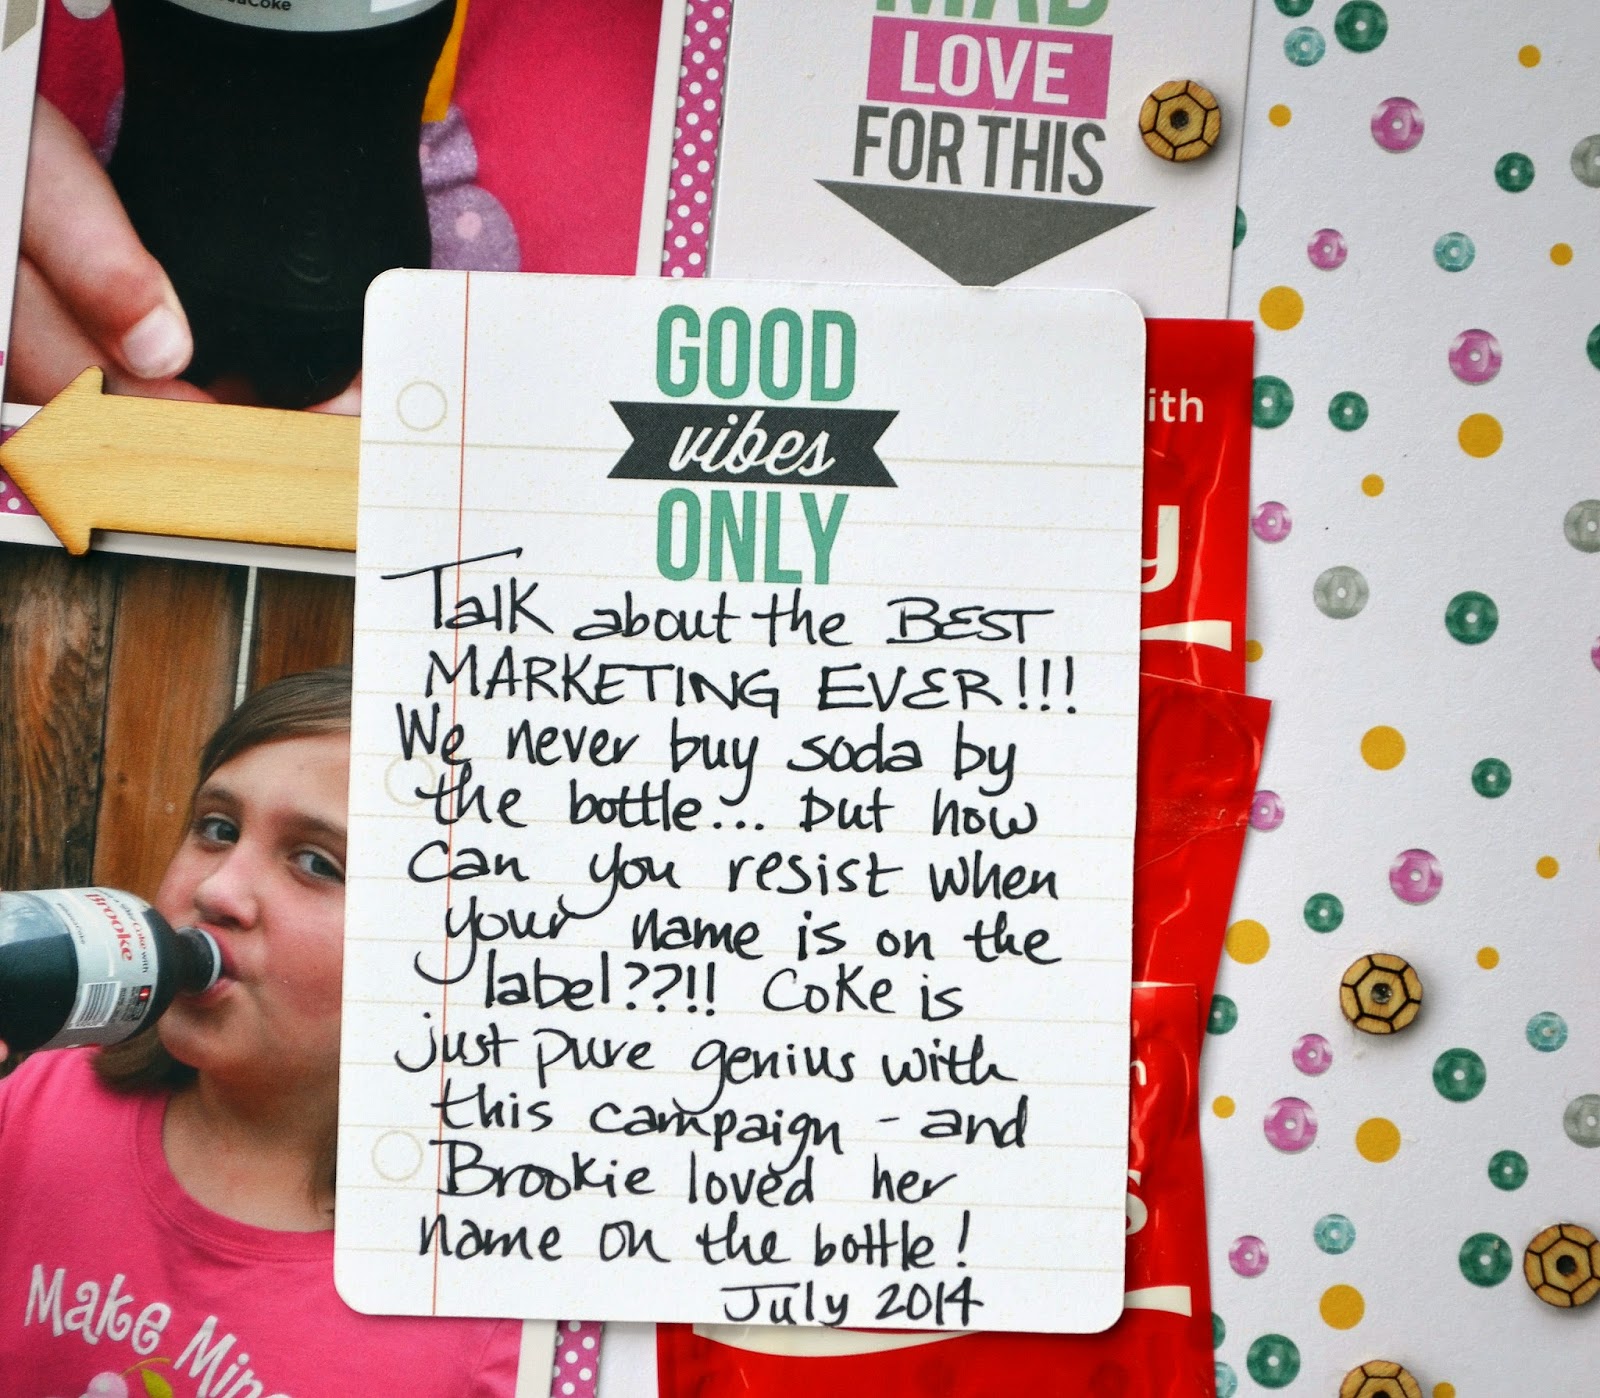 MAD
LOVE
FOR THIS
GOOD
vibes
ONLY
Talk about the BEST
MARKETING EVER!!!
We never buy soda by
the bottle... but how
can you resist when
your name is on the
label??!! Coke is
just pure genius with
this campaign - and
Brookie loved her
name on the bottle!
July 2014
ith
y
Coke with
Brooke
Make Min
s